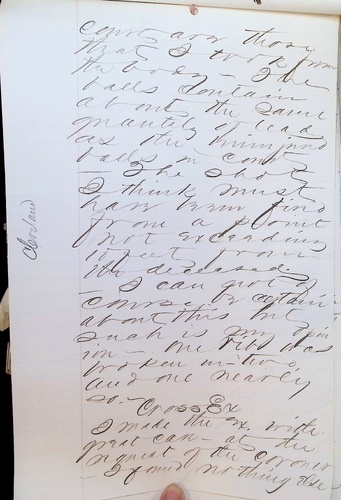 court are those
that I took from
the body — The
balls contain
about the same
quantity of lead
as the
balls in court
— The shot
I think must
have been fired
from a point
not exceeding
feet from
the deceased.
I can not of
course be certain
about this but
such is my opin
ion — one rib was
broken in two
and one nearly
so. —
Cross Ex
I made the ex. with
great care — at the
request of the coroner
— I found nothing else
Cleveland